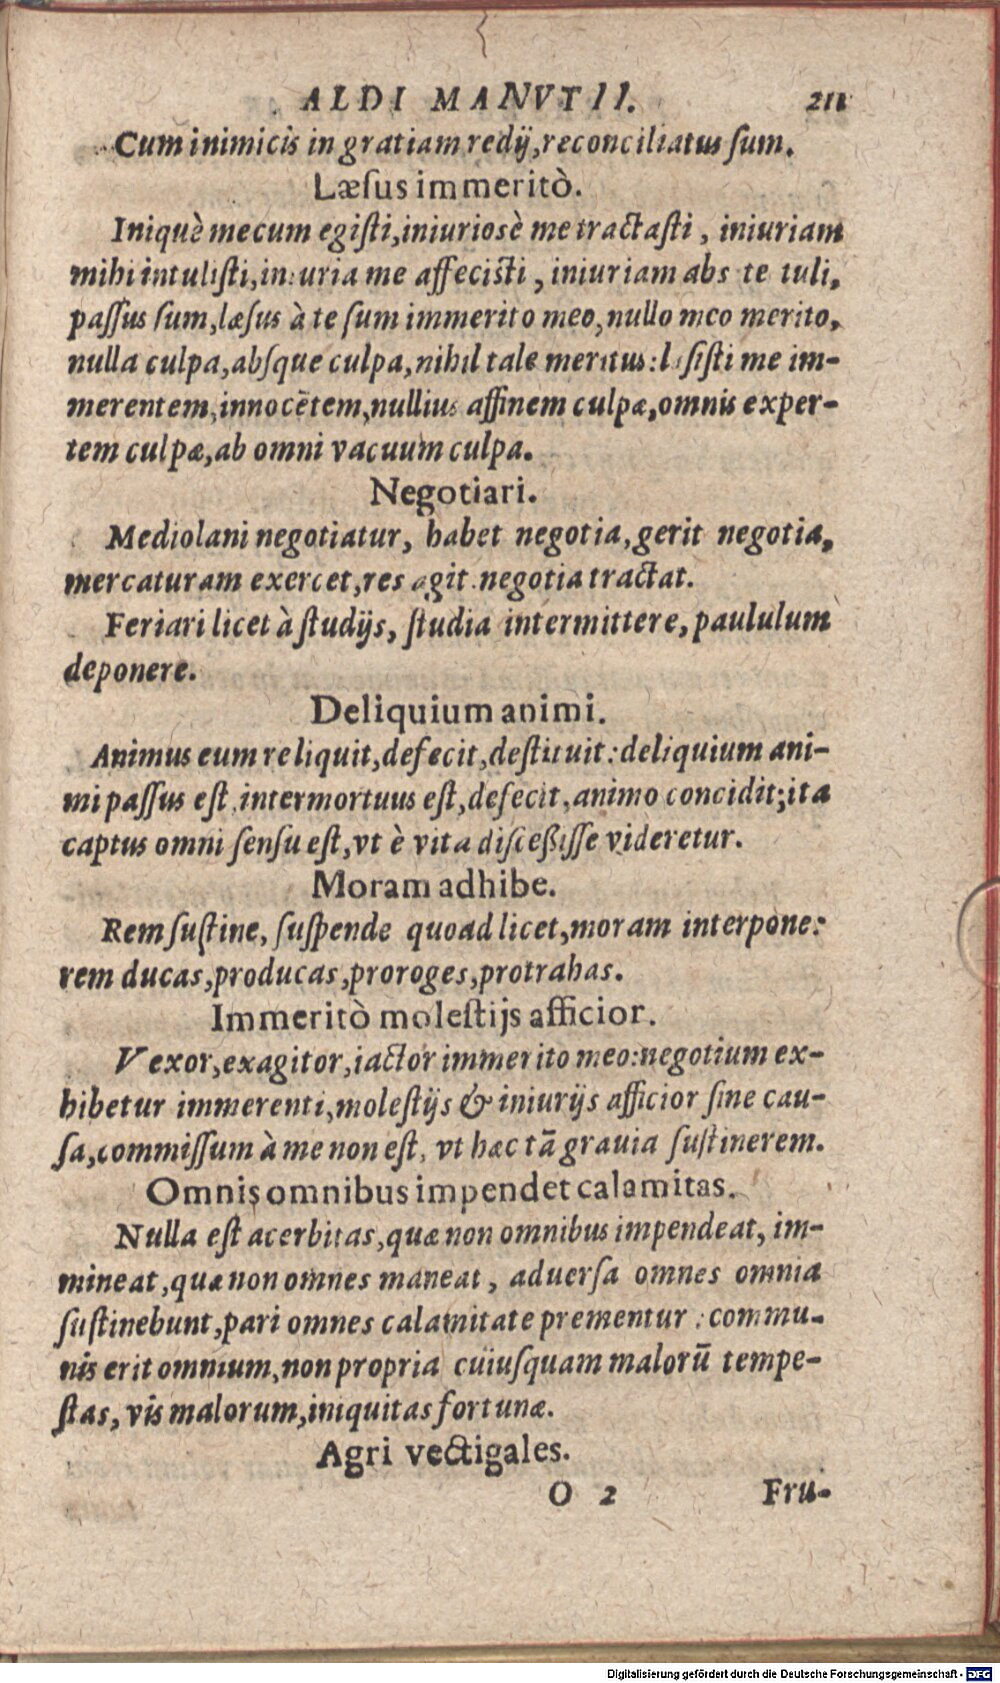 ALDI MANVTII. 211
Cum inimicis in gratiam redij, reconciliatus ſum.
Læſus immeritò.
Iniquè mecum egiſti, iniuriosè me tractaſti, iniuriam
mihi intuliſti, iniuria me affeciſti, iniuriam abs te tuli,
paſſus ſum, læſus à te ſum immerito meo, nullo meo merito,
nulla culpa, abſque culpa, nihil tale meritus: læſiſti me im-
merentem, innocẽtem, nullius affinem culpæ, omnis exper-
tem culpæ, ab omni vacuum culpa.
Negotiari.
Mediolani negotiatur, habet negotia, gerit negotia,
mercaturam exercet, res agit negotia tractat.
Feriari licet à ſtudijs, ſtudia intermittere, paululum
deponere.
Deliquium animi.
Animus eum reliquit, defecit, deſtituit: deliquium ani-
mi paſſus eſt, intermortuus eſt, defecit, animo concidit; ita
captus omni ſenſu eſt, vt è vita diſceßiſſe videretur.
Moram adhibe.
Rem ſuſtine, ſuſpende quoad licet, moram interpone:
rem ducas, producas, proroges, protrahas.
Immeritò moleſtijs afficior.
Vexor, exagitor, iactor immerito meo: negotium ex-
hibetur immerenti, moleſtijs & iniurijs afficior ſine cau-
ſa, commiſſum à me non eſt, vt hæc tã grauia ſuſtinerem.
Omnis omnibus impendet calamitas.
Nulla eſt acerbitas, quæ non omnibus impendeat, im-
mineat, quæ non omnes maneat, aduerſa omnes omnia
ſuſtinebunt, pari omnes calamitate prementur: commu-
nis erit omnium, non propria cuiuſquam malorũ tempe-
ſtas, vis malorum, iniquitas fortunæ.
Agri vectigales.
O 2 Fru-
Digitalisierung gefördert durch die Deutsche Forschungsgemeinschaft - DFG